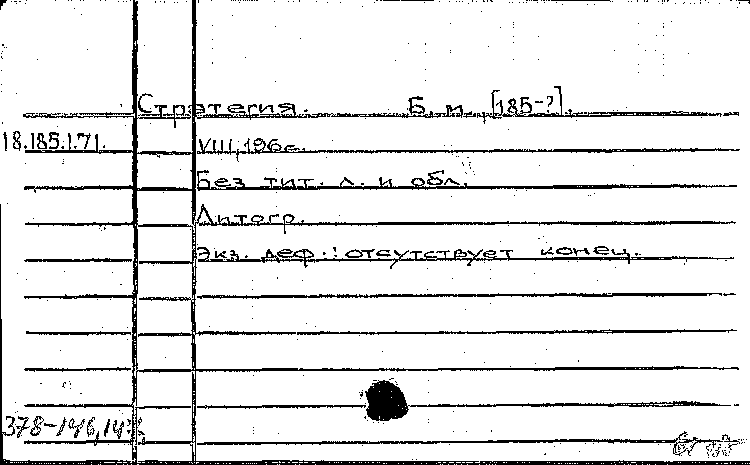 Стратегия. Б. м., [185-?].
18.185.1.71. VIII, 196 с.
Без тит. л. и обл.
Литогр.
Экз. деф.: отсутствует конец.
378-146,147